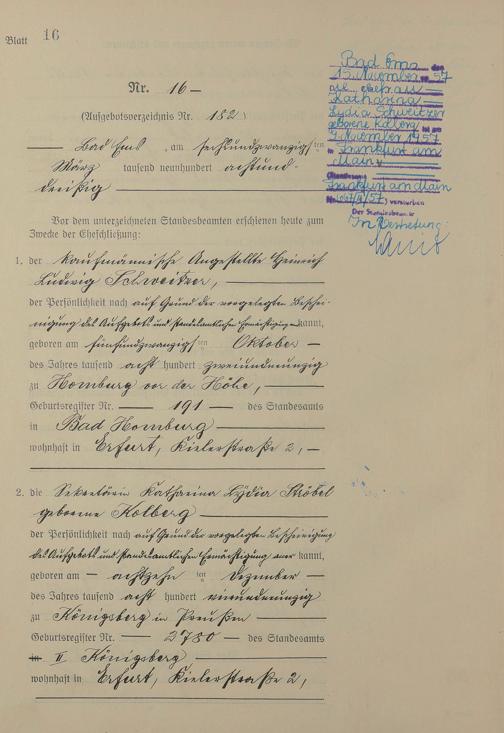 Blatt 16
Nr. 16 —
(Aufgebotsverzeichnis Nr. 182)
Bad Ems, am sechsundzwanzigsten
März tausend neunhundert achtund-
dreißig
Vor dem unterzeichneten Standesbeamten erschienen heute zum
Zwecke der Eheschließung:
1. der kaufmännische Angestellte Heinrich
Ludwig Schweitzer,
der Persönlichkeit nach auf Grund der vorgelegten Beschei-
nigung des Aufgebots und standesamtlichen Ermächtigung kannt,
geboren am fünfundzwanzigsten Oktober
des Jahres tausend acht hundert zweiundneunzig
zu Homburg vor der Höhe,
Geburtsregister Nr. 191 des Standesamts
in Bad Homburg
wohnhaft in Erfurt, Kielerstraße 2,
2. die Sekretärin Katharina Lydia Ströbel
geborene Kolberg
der Persönlichkeit nach auf Grund der vorgelegten Bescheinigung
des Aufgebots und standesamtlichen Ermächtigung aner kannt,
geboren am achtzehn ten Dezember
des Jahres tausend acht hundert
zu Königsberg in Preußen
Geburtsregister Nr. 2780 des Standesamts
II Königsberg
wohnhaft in Erfurt, Kielerstraße 2,
Bad Ems, den
15. November 1957
Die Ehefrau
Katharina
Lydia Schweitzer
geborene Kolberg ist am
November 1957
in Frankfurt am
Main
(Standesamt
Frankfurt am Main
Nr. /57) verstorben
Der Standesbeamte
In Vertretung: